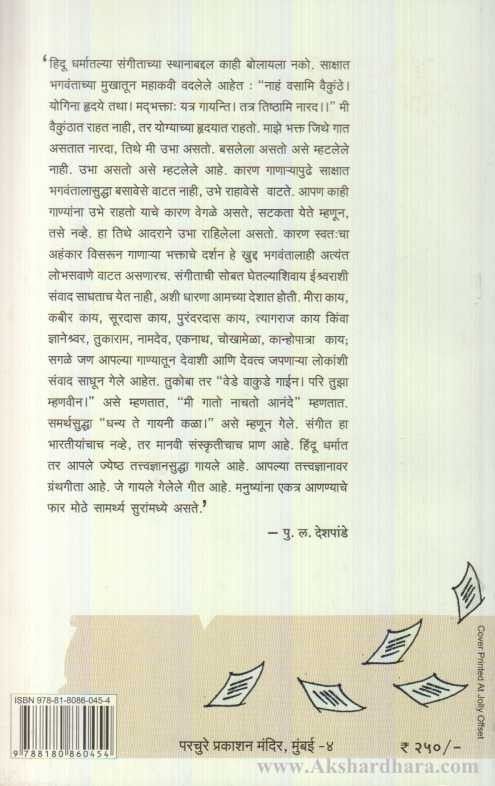 ‘हिंदू धर्मातल्या संगीताच्या स्थानाबद्दल काही बोलायला नको. साक्षात
भगवंताच्या मुखातून महाकवी वदलेले आहेत : “नाहं वसामि वैकुंठे।
योगिना हृदये तथा। मद्‌भक्ताः यत्र गायन्ति। तत्र तिष्ठामि नारद।।” मी
वैकुंठात राहत नाही, तर योग्याच्या हृदयात राहतो. माझे भक्त जिथे गात
असतात नारदा, तिथे मी उभा असतो. बसलेला असतो असे म्हटलेले
नाही. उभा असतो असे म्हटलेले आहे. कारण गाणाऱ्यापुढे साक्षात
भगवंतालासुद्धा बसावेसे वाटत नाही, उभे राहावेसे वाटते. आपण काही
गाण्यांना उभे राहतो याचे कारण वेगळे असते, सटकता येते म्हणून,
तसे नव्हे. हा तिथे आदराने उभा राहिलेला असतो. कारण स्वतःचा
अहंकार विसरून गाणाऱ्या भक्ताचे दर्शन हे खुद्द भगवंतालाही अत्यंत
लोभसवाणे वाटत असणारच. संगीताची सोबत घेतल्याशिवाय ईश्वराशी
संवाद साधताच येत नाही, अशी धारणा आमच्या देशात होती. मीरा काय,
कबीर काय, सूरदास काय, पुरंदरदास काय, त्यागराज काय किंवा
ज्ञानेश्वर, तुकाराम, नामदेव, एकनाथ, चोखामेळा, कान्होपात्रा काय;
सगळे जण आपल्या गाण्यातून देवाशी आणि देवत्व जपणाऱ्या लोकांशी
संवाद साधून गेले आहेत. तुकोबा तर “वेडे वाकुडे गाईन। परि तुझा
म्हणवीन।” असे म्हणतात, “मी गातो नाचतो आनंदे” म्हणतात.
समर्थसुद्धा “धन्य ते गायनी कळा।” असे म्हणून गेले. संगीत हा
भारतीयांचाच नव्हे, तर मानवी संस्कृतीचाच प्राण आहे. हिंदू धर्मात
तर आपले ज्येष्ठ तत्त्वज्ञानसुद्धा गायले आहे. आपल्या तत्त्वज्ञानावर
ग्रंथगीता आहे. जे गायले गेलेले गीत आहे. मनुष्यांना एकत्र आणण्याचे
फार मोठे सामर्थ्य सुरांमध्ये असते.’
– पु. ल. देशपांडे
Cover Printed At Jolly Offset
ISBN 978-81-8086-045-4
9 788180 860454
परचुरे प्रकाशन मंदिर, मुंबई -४
₹ २५०/-
www.Akshardhara.com